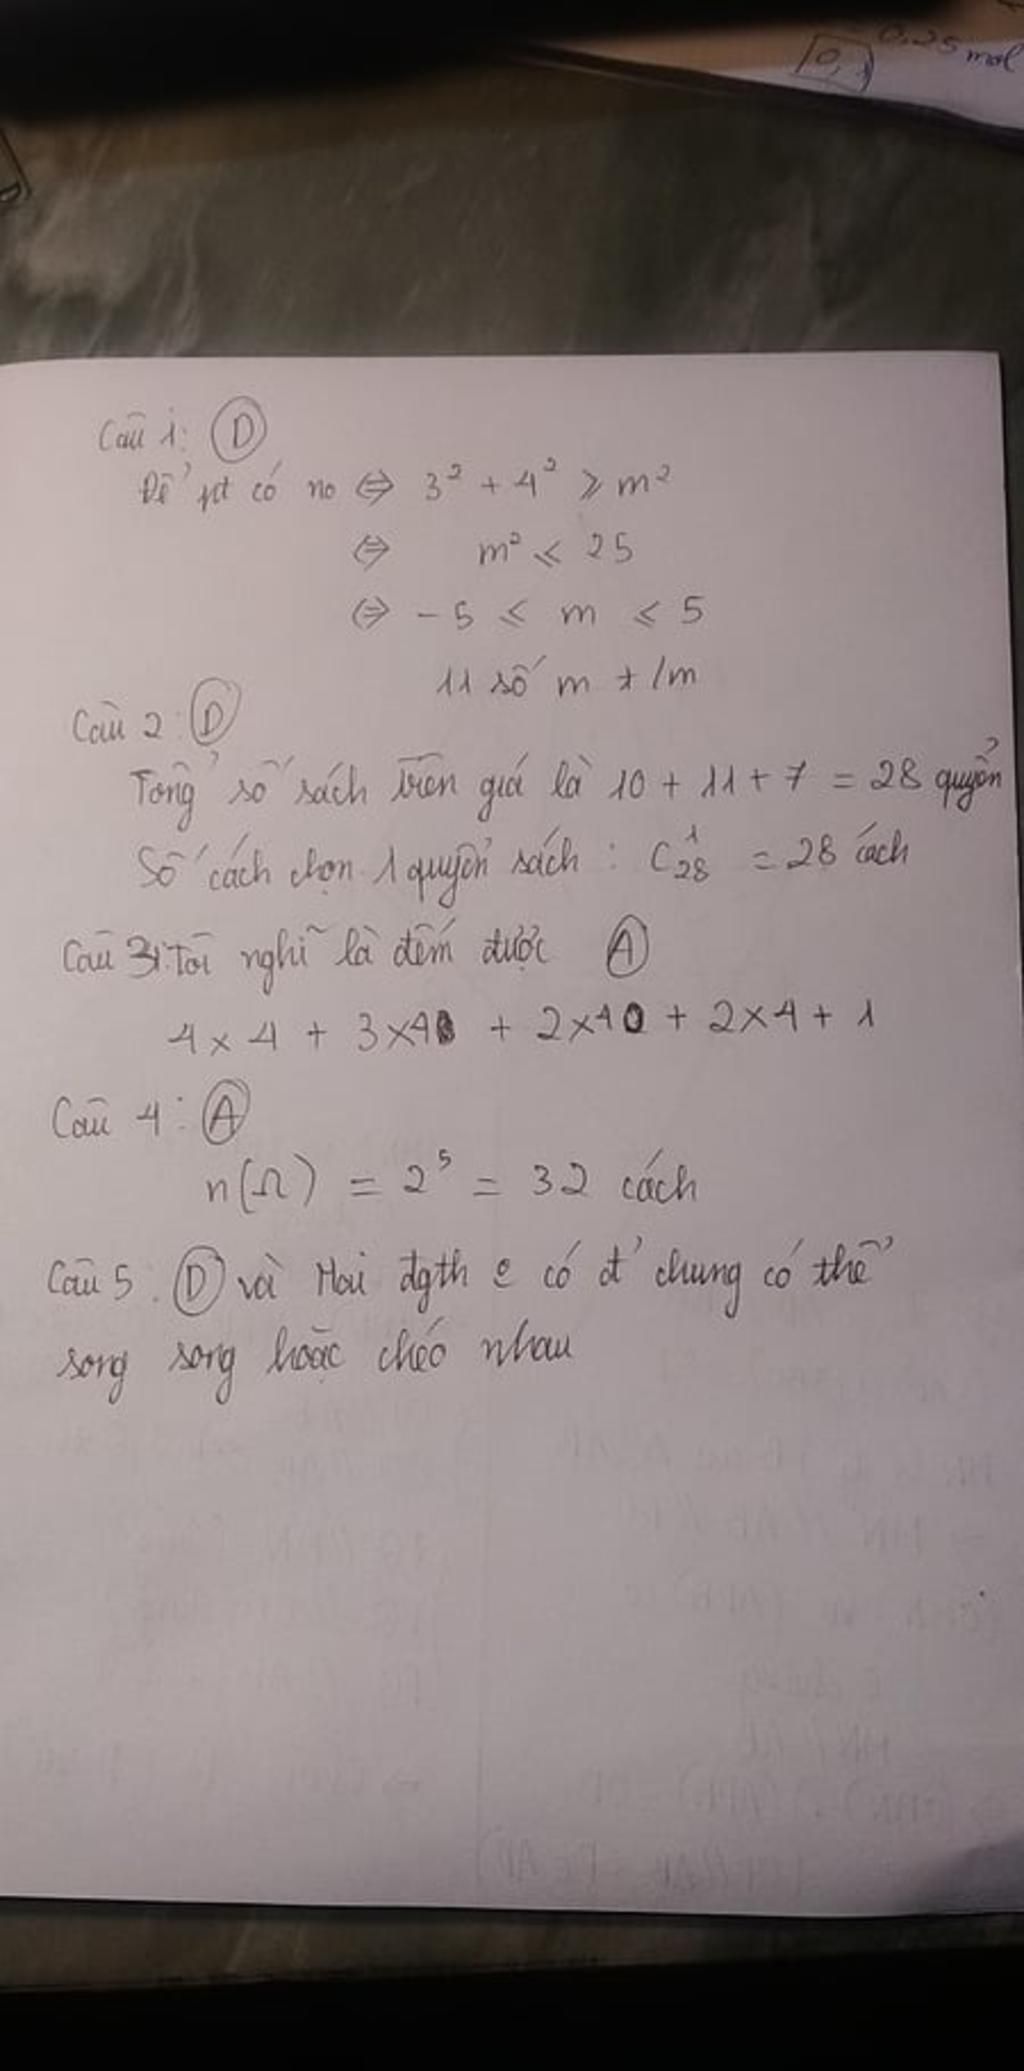 0,25 mol
0,1
Câu 1: D
Để pt có no ⇔ 3² + 4² ⩾ m²
⇔ m² ⩽ 25
⇔ -5 ⩽ m ⩽ 5
11 số m t/m
Câu 2: D
Tổng số sách trên giá là 10 + 11 + 7 = 28 quyển
Số cách chọn 1 quyển sách : C¹₂₈ = 28 cách
Câu 3: Tôi nghĩ là đếm được A
4 x 4 + 3 x 4 + 2 x 10 + 2 x 4 + 1
Câu 4: A
n(Ω) = 2⁵ = 32 cách
Câu 5. D vì Hai đgth có đ' chung có thể
song song hoặc chéo nhau